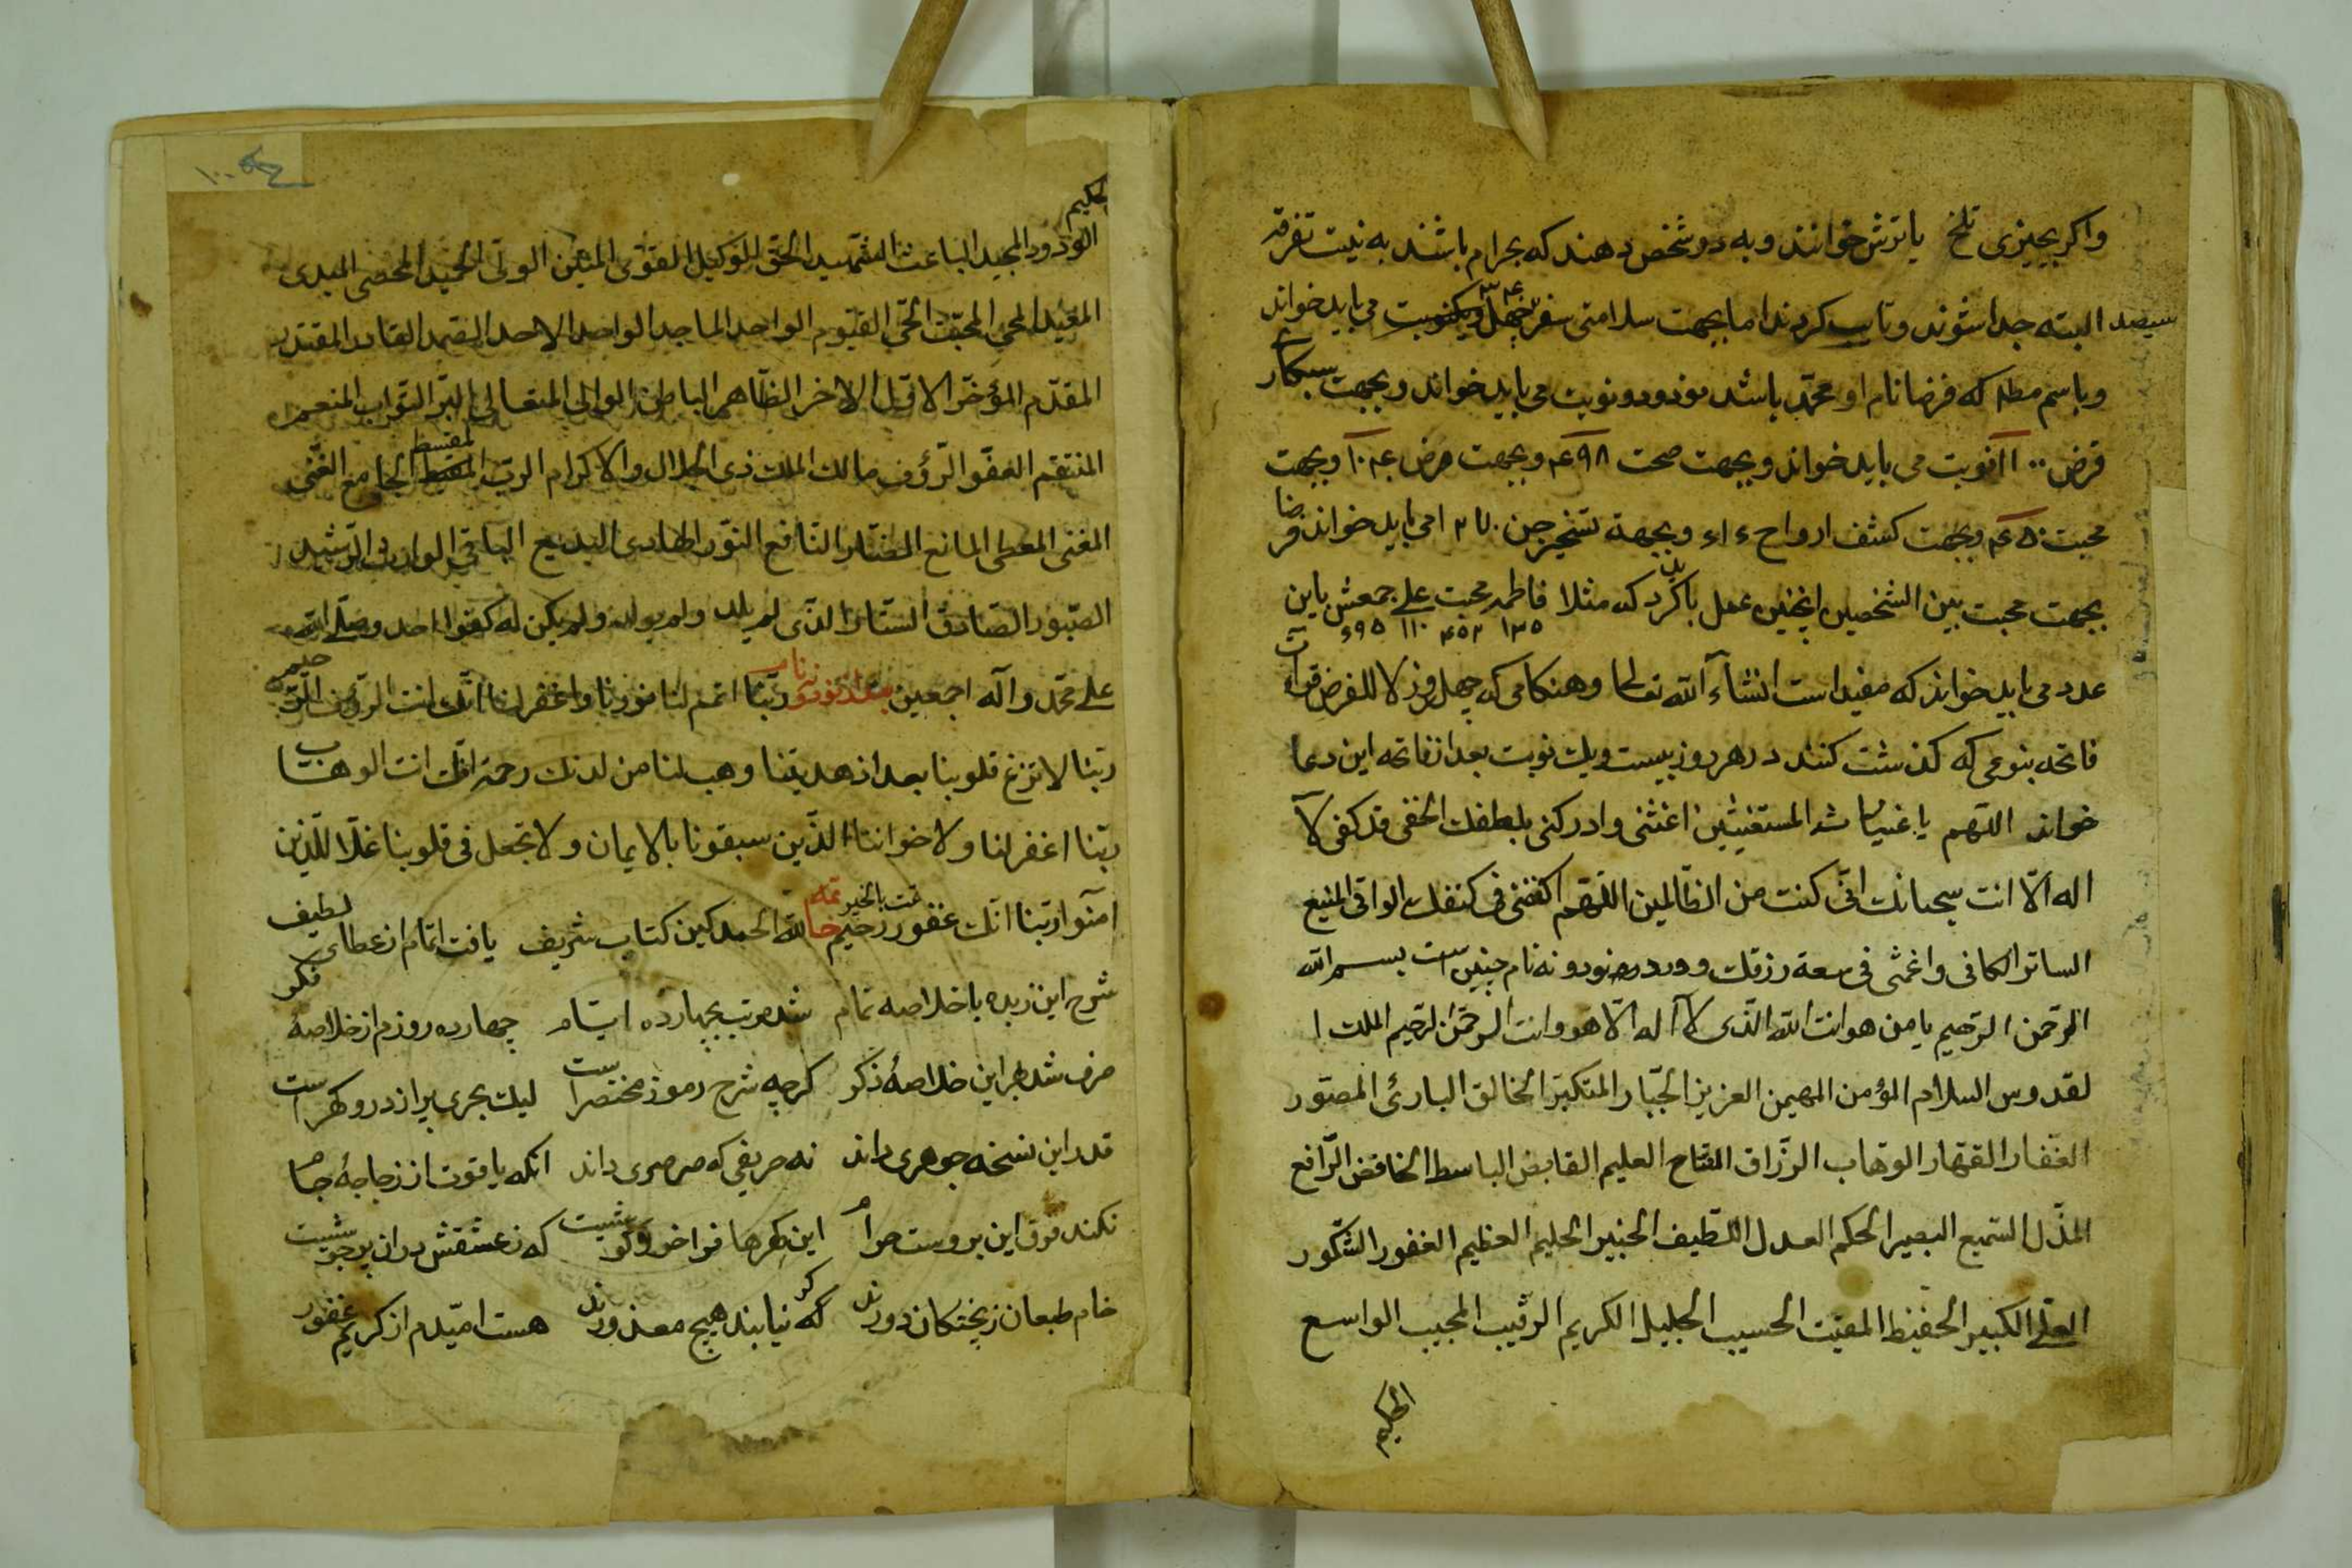 واکر بچیزی تلخ یا ترش خوانند و به دو شخص دهند که بحرام باشند به نیت تفرقه
سیصد البته جدا شوند و تایب کردند اما بجهت سلامتی سفر چهل و یکنوبت می باید خواند
و باسم مطلـ که فرضا نام او محمّد باشد نود و دو نوبت می باید خواند و بجهت
قرض ۱۱۰۰ نوبت می باید خواند و بجهت صحت ۴۹۸ و بجهت مرض ۱۰۴ و بجهت
محبت ۴۵۰ و بجهت کشف ارواح و بجهة تسخیر جن می باید خواند فرضا
بجهت محبت بین الشخصین اینچنین عمل باید کرد که مثلا فاطمه محبت علی جمعش باین
۱۳۵ ۴۵۲ ۱۱۰ ۶۹۵
عدد می باید خواند که مفید است انشاء الله تعالی و هنکامی که چهل روز لا للفرض قرآت
فاتحه بنوعی که کذشت کنند در هر روز بیست و یك نوبت بعد از فاتحه این دعا
خواند اللّهم یا غیاث المستغیثین اغثنی و ادرکنی بلطفك الخفی قد کفی لا
اله الّا انت سبحانك انّی کنت من الظّالمین اللّهم اکنفنی فی کنفك الواقی المنیع
الساتر الکافی و اغمثی فی سعة رزقك و ورد نود و نه نام چنین است بسم الله
الرّحمن الرّحیم یا من هو انت الله الّذی لا اله الّا هو و انت الرّحمن الرّحیم الملك ا
لقدوس السلام المؤمن المهیمن العزیز الجبّار المتکبّر الخالق البارئ المصوّر
الغفّار القهّار الوهاب الرّزاق الفتاح العلیم القابض الباسط الخافض الرّافع
المذّل السّمیع البصیر الحکم العدل اللّطیف الخبیر الحلیم العظیم الغفور الشّکور
العلّی الکبیر الحفیظ المقیت الحسیب الجلیل الکریم الرقّیب المجیب الواسع
الحکیم
الحکیم
الودود المجید الباعث الشّهید الحق الوکیل القوّی المتین الولّی الحمید المحصی المبدی
المعید المحیی الممیت الحّی القیّوم الواجد الماجد الواحد الاحد الصّمد القادر المقتدر
المقدّم المؤخّر الاوّل الاخر الظّاهر الباطن الوالی المتعالی البّر التوّاب المنعم
المنتقم العفّو الرّؤف مالك الملك ذی الجلال و الاکرام الربّ المقسط الجامع الغّنی
المغنی المعطی المانع الضّار النّافع النّور الهادی البدیع الباقی الوارث الرّشید
الصّبور الصّادق السّتار الّذی لم یلد و لم یولد و لم یکن له کفوا احد و صلّی الله
علی محمّد و آله اجمعین ربّنا اتمم لنا نورنا و اغفر لنا انّك انت الرّؤف الرّحیم
ربّنا لا تزغ قلوبنا بعد اذ هدیتنا و هب لنا من لدنك رحمة انّك انت الوهّاب
ربّنا اغفر لنا و لاخواننا الذّین سبقونا بالایمان و لا تجعل فی قلوبنا غلّا للّذین
آمنوا ربّنا انّك غفور رحیم تمت بالخیر لله الحمد کین کتاب شریف یافت اتمام از عطای لطیف
شرح این زبده با خلاصه تمام شد مرتب بچهارده ایام چهارده روزم از خلاصهٔ فکر
صرف شد بر این خلاصهٔ ذکر کرچه شرح رموز مختصر است لیك بحری پر از در و کهر است
قدر این نسخه جوهری داند نه حریفی که صرصری داند انکه یاقوت از زجاجهٔ جام
نکند فرق این بروست حرام این کهرها که ز عشقش دران
خام طبعان ز پختکان دورند که نیابند هیچ معذورند هست امّیدم از کریم غفور